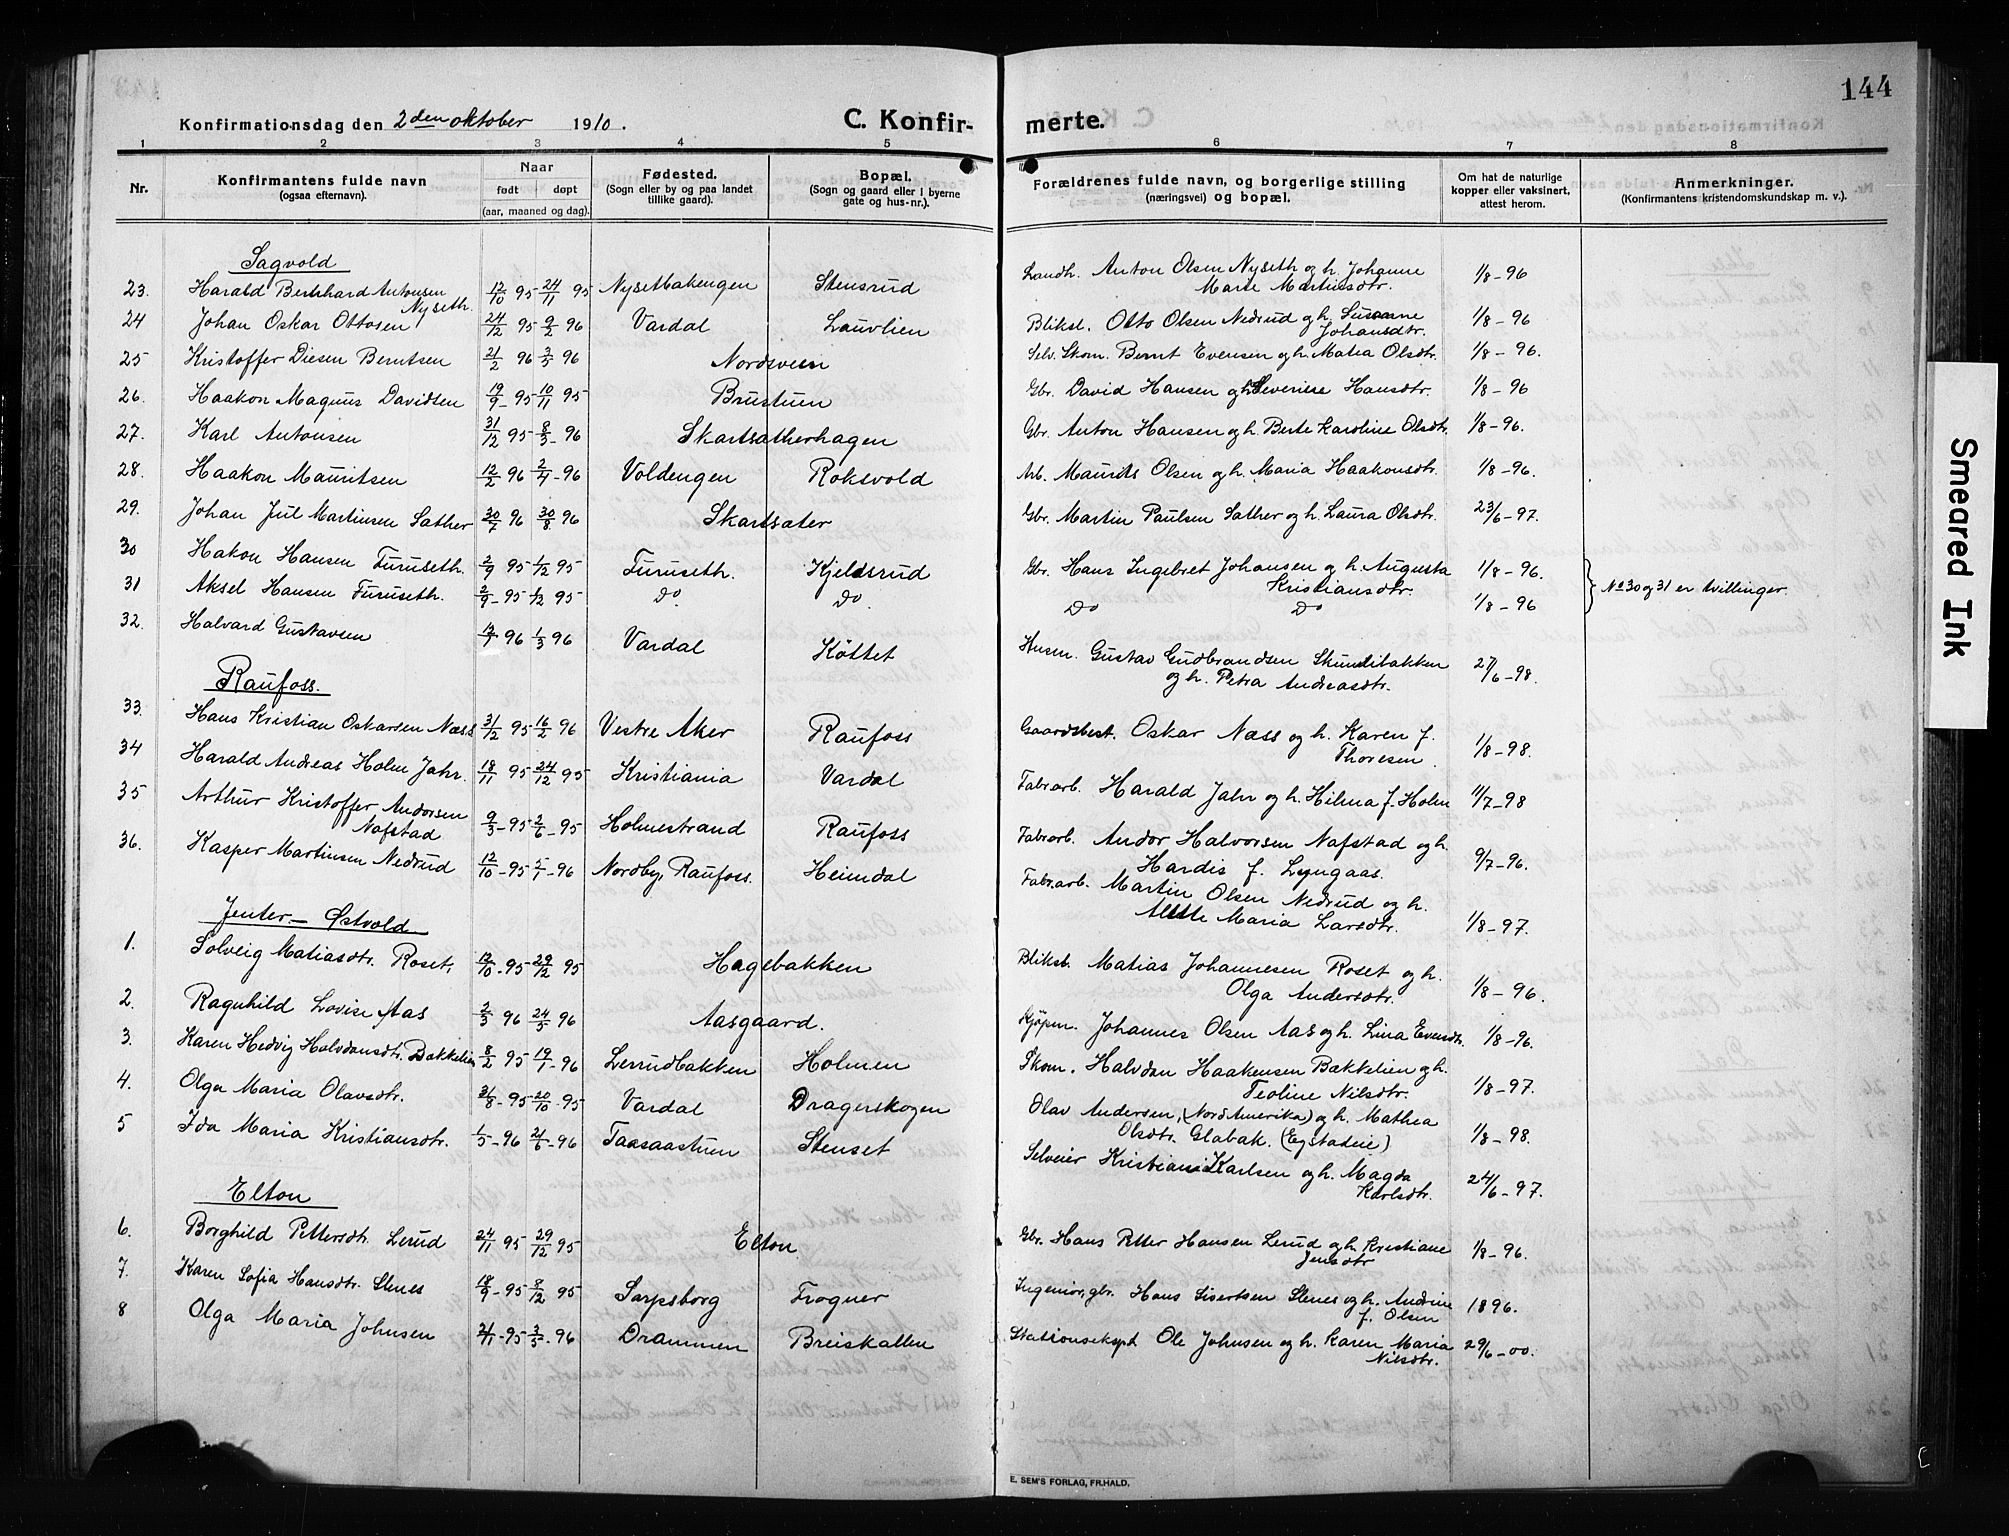 144
Konfirmationsdag den 2den oktober 1910. C. Konfir- merte.
1 2 3 4 5 6 7 8
Nr. Konfirmantens fulde navn (ogsaa efternavn). Naar født døpt (aar, maaned og dag). Fødested. (Sogn eller by og paa landet tillike gaard). Bopæl. (Sogn og gaard eller i byerne gate og hus-nr.). Forældrenes fulde navn, og borgerlige stilling (næringsvei) og bopæl. Om hat de naturlige kopper eller vaksinert, attest herom. Anmerkninger. (Konfirmantens kristendomskundskap m. v.).
Sagvold
23. Harald Bernhard Antonsen Nyseth. 12/10 95 24/11 95 Nysetbakengen Stensrud Landh. Anton Olsen Nyseth og h. Johanne Marie Martinsdtr. 1/8-96
24 Johan Oskar Ottosen 24/12 95 9/2 96 Vardal Lauvlien Bliksl. Otto Olsen Nedrud og h. Susanne Johansdtr. 1/8-96
25 Kristoffer Diesen Berntsen 21/2 96 3/5 96 Nordsveen Selv. Skom. Bernt Evensen og h. Matea Olsdtr. 1/8-96.
26. Haakon Magnus Davidsen 19/9-95 10/11 95 Brustuen Gbr. David Hansen og h. Severine Hansdtr. 1/8-96
27. Karl Antonsen 31/12 95 8/3-96 Skartsætherhagen Gbr. Anton Hansen og h. Berte Karoline Olsdtr. 1/8-96.
28. Haakon Mauritsen 12/2 96 2/4-96 Voldengen Roksvold Arb. Maurits Olsen og h. Maria Haakonsdtr. 1/8-96.
29. Johan Jul Martinsen Sæther 30/7 96 30/8 96 Skartsæter Gbr. Martin Paulsen Sæther og h. Laura Olsdtr. 23/6-97.
30 Hakon Hansen Furuseth. 2/9 95 1/12 95 Furuseth. Kjeldsrud Gbr. Hans Ingebret Johansen og h. Augusta Kristiansdtr. 1/8-96. } No 30 og 31 er tvillinger.
31 Aksel Hansen Furuseth. 2/9-95 1/12 95 Do. Do. Do Do 1/8-96
32. Halvard Gustavsen 12/1 96 1/3 96 Vardal Köttet Husm. Gustav Gudbrandsen Skundibakken og h. Petra Andreasdtr. 27/6-98.
Raufoss.
33. Hans Kristian Oskarsen Næss 31/12 95 16/2 96 Vestre Aker Raufoss Gaardsbest. Oskar Næss og h. Karen f. Thoresen. 1/8-98.
34 Harald Andreas Holm Jahr. 18/11 95 24/12 95 Kristiania Vardal Fabr.arb. Harald Jahr og h. Hilma f. Holm 11/7-98
35 Arthur Kristoffer Andorsen Nafstad 9/3-95 2/6-95 Holmestrand Raufoss Fabr.arb. Andor Halvorsen Nafstad og h. Hardis f. Lyngaas. 9/7-96.
36. Kasper Martinsen Nedrud 12/10-95 5/1-96 Nordby, Raufoss. Heimdal Fabr.arb. Martin Olsen Nedrud og h. Alette Maria Larsdtr. 1/8-97.
Jenter- Østvold
1. Solveig Matiasdtr. Roset. 12/10-95 29/12 95 Hagebakken Bliksl. Matias Johannesen Roset og h. Olga Andersdtr. 1/8-96.
2. Ragnhild Lovise Aas 2/3 96 24/5 96 Aasgaard. Kjöpm. Johannes Olsen Aas og h. Lina Evensdtr. 1/8-96.
3. Karen Hedvig Halvdansdtr. Bakkelien 8/2 95 19/1-96 Lerrudbakken Holmen Skom. Halvdan Haakensen Bakkelien og h. Teoline Nilsdtr. 1/8-97.
4. Olga Maria Olavsdtr. 31/8-95 20/10-95 Vardal Dragerskogen Olav Andersen, (Nord Amerika) og h. Mathea Olsdtr. Glabak. (Egstadeie) 1/8-98.
5 Ida Maria Kristiansdtr. 1/5-96 21/6-96 Taasaastuen Stenset Selveier Kristian Karlsen og h. Magda Karlsdtr. 24/6-97.
Elton
6. Borghild Pettersdtr. Lerud 24/11 95 29/12 95 Elton Gbr. Hans Petter Hansen Lerud og h. Kristiane Jensdtr 1/8-96.
7. Karen Sofia Hansdtr. Slenes 18/9-95 8/12 95 Sarpsborg Frogner Ingeniør, gbr. Hans Sivertsen Slenes og h. Andrine f. Olsen 1896.
8 Olga Maria Johnsen 21/1-95 3/5-96 Drammen Breiskallen Stationseksp. Ole Johnsen og h. Karen Maria Nilsdtr. 29/6-00.
E. SEM'S FORLAG, FR.HALD.
Smeared Ink